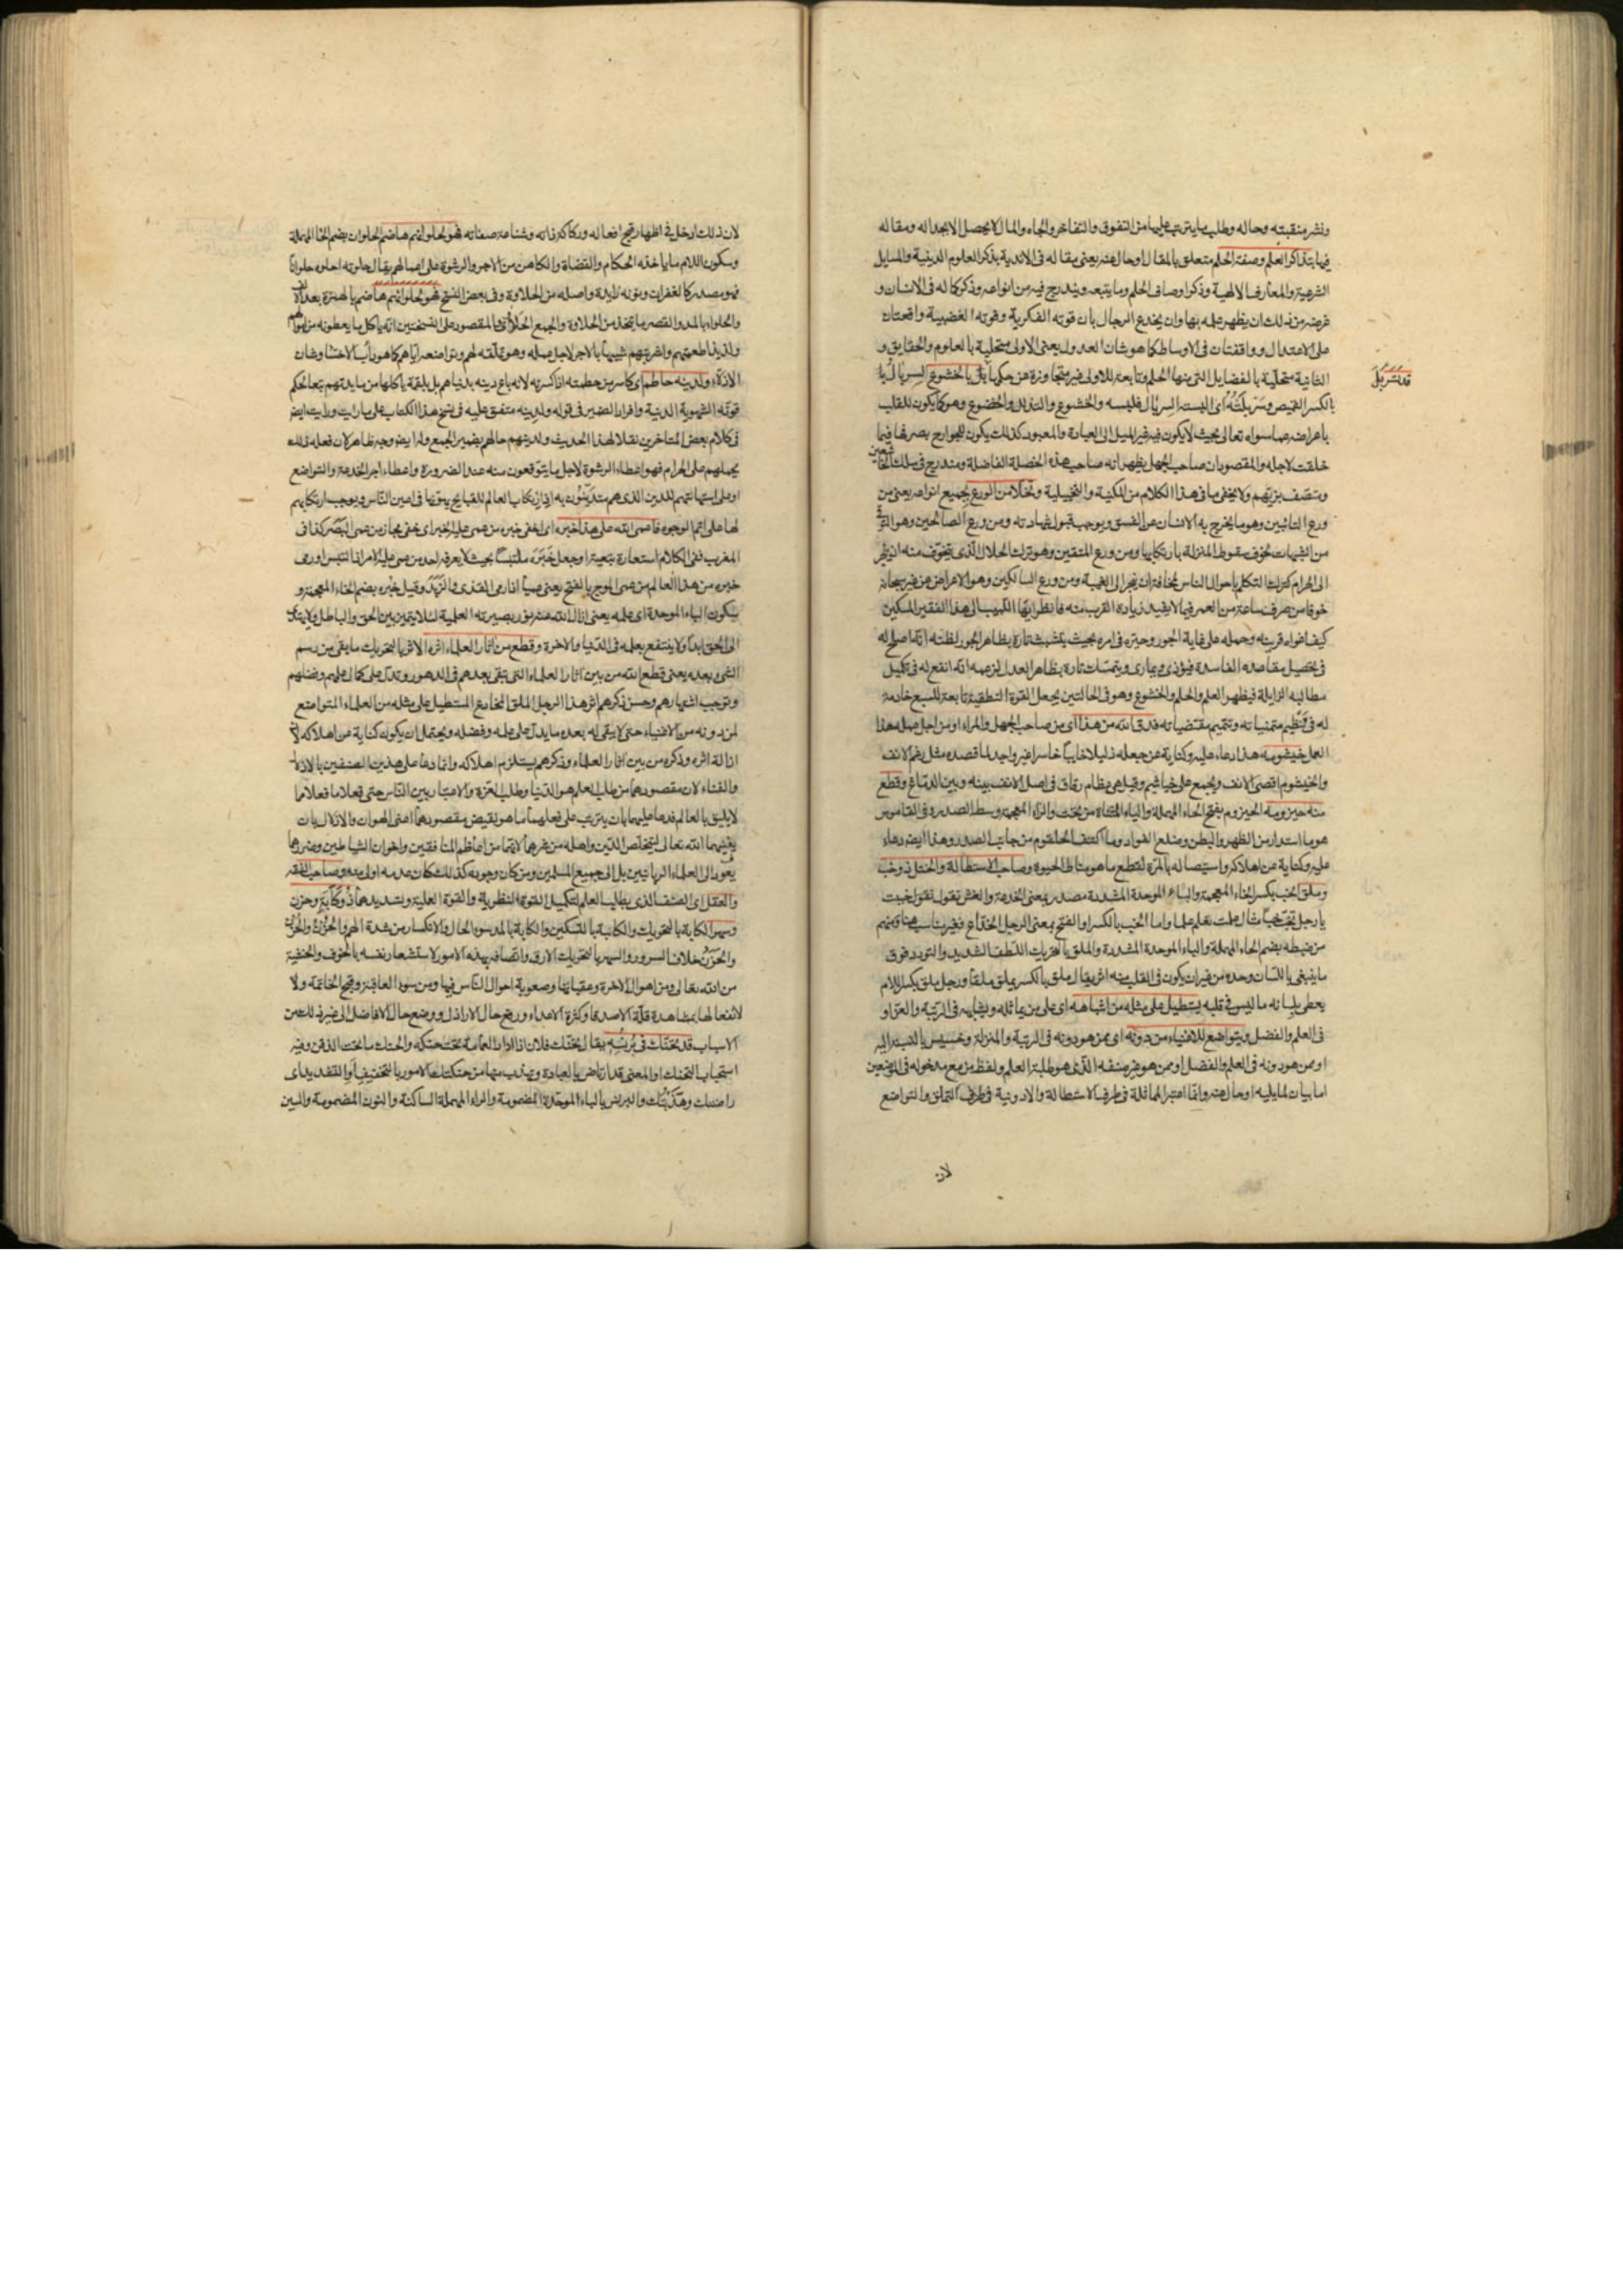 ونشر منقبته وحاله وطلب ما يترتب عليها من التفوق والتفاخر والجاه والمال لا يحصل الا بجداله ومقاله
فيها بتذاكر العلم وصفة الحلم متعلق بالمقال او حال عنه يعنى مقاله فى الاندية بذكر العلوم الدينية والمسايل
الشرعية والمعارف الالهية وذكر اوصاف الحلم وما يتبعه ويندرج فيه من انواعه وذكر كماله فى الانسان و
غرضه من ذلك ان يظهر علمه بها وان يخدع الرجال بان قوته الفكرية وقوته الغضبية واقعتان
على الاعتدال وواقفتان فى الاوساط كما هو شان العدول يعنى الاولى متحلية بالعلوم والحقايق و
الثانية متحلية بالفضايل التى منها الحلم وتابعة للاولى غير متجاوزة عن حكمها قد تسربل بالخشوع السربال
بالكسر القميص وسربلته اى البسته السربال فلبسه والخشوع والتذلل والخضوع وهو كما يكون للقلب
باعراضه عما سواه تعالى بحيث لا يكون فيه غير الميل الى العبادة والمعبود كذلك يكون للجوارح بصرفها فيما
خلقت لاجله والمقصود بان صاحب الجهل يظهر انه صاحب هذه الخصلة الفاضلة ومندرج فى سلك الخاشعين
ومتصف بزيهم ولا يخفى ما فى هذا الكلام من المكنية والتخييلية وتخلا من الورع بجميع انواعه يعنى من
ورع التائبين وهو ما يخرج به الانسان عن الفسق ويوجب قبول شهادته ومن ورع الصالحين وهو التوقى
من الشبهات لخوف سقوط المنزلة بارتكابها ومن ورع المتقين وهو ترك الحلال الذى يتخوف منه ان ينجر
الى الحرام كترك التكلم باحوال الناس مخافة ان ينجر الى الغيبة ومن ورع السالكين وهو الاعراض عن غيره سبحانه
خوفا من صرف ساعة من العمر فيما لا يفيد زيادة القرب منه فانظر ايها اللبيب الى هذا الفقير المسكين
كيف اغواه قرينه وحمله على غاية الجور وحيره فى امره بحيث يتشبث تارة بظاهر الجور لظنه انه اصلح له
فى تحصيل مقاصده الفاسدة فيؤذى ويمارى ويتمسك تارة بظاهر العدل لزعمه انه انفع له فى تكميل
مطالبه الزايلة فيظهر العلم والحلم والخشوع وهو فى الحالتين يجعل القوة النطقية تابعة للسبع خادمة
له فى تنظيم متمنياته وتتميم مقتضياته فدق الله من هذا اى من صاحب الجهل والمراء او من اجل عمله هذا
العمل خيشومه هذا دعاء عليه وكناية عن جعله ذليلا خايبا خاسرا غير واجد لما قصده مثل رغم الانف
والخيشوم اقصى الانف ويجمع على خياشيم وقيل هى عظام رقاق فى اصل الانف بينه وبين الدماغ وقطع
منه حيزومه الحيزوم بفتح الحاء المهملة والياء المثناة من تحت والزاء المعجمة وسط الصدر وفى القاموس
هو ما استدار من الظهر والبطن وضلع الفواد وما اكتنف الحلقوم من جانب الصدر وهذا ايضا دعاء
عليه وكناية عن اهلاكه واستيصاله بالمرة لقطع ما هو مناط الحيوة وصاحب الاستطالة والختل ذو خب
وملق الخب بكسر الخاء المعجمة والباء الموحدة المشددة مصدر بمعنى الخدعة والغش تقول تقول خببت
يا رجل تخب خبا مثال علمت تعلم علما واما الخب بالكسر او الفتح بمعنى الرجل الخداع فغير مناسب هنا ومنهم
من ضبطه بضم الحاء المهملة والباء الموحدة المشددة والملق بالتحريك اللطف الشديد والتودد فوق
ما ينبغى باللسان وحده من غير ان يكون فى القلب منه اثر يقال ملق بالكسر يملق ملقا ورجل ملق بكسر اللام
يعطى بلسانه ما ليس فى قلبه يستطيل على مثله من اشباهه اى على من يماثله ويشابهه فى الرتبة والعز او
فى العلم والفضل ويتواضع للاغنياء من دونه اى ممن هو دونه فى الرتبة والمنزلة وخسيس بالنسبة اليه
او ممن هو دونه فى العلم والفضل او ممن هو غير صنفه الذى هو طلبة العلم ولفظ من مع مدخوله فى الموضعين
اما بيان لما يليه او حال عنه وانما اعتبر المماثلة فى طرف الاستطالة والادونية فى طرف التملق والتواضع
قد تسربل
لان
لان ذلك ادخل فى اظهار قبح افعاله وركاكة ذاته وشناعة صفاته فهو لحلوانهم هاضم الحلوان بضم الحاء المهملة
وسكون اللام ما ياخذه الحكام والقضاة والكاهن من الاجر والرشوة على اعمالهم يقال حلوته احلوه حلوانا
فهو مصدر كالغفران ونونه زايدة واصله من الحلاوة وفى بعض النسخ فهو لحلوائهم هاضم بالهمزة بعد الالف
والحلواء بالمد والقصر ما يتخذ من الحلاوة والجمع الحلاوى والمقصود على النسختين انه ياكل ما يعطونه من اموالهم
ولذيذ اطعمتهم واشربتهم شبيها بالاجر لاجل عمله وهو تملقه لهم وتواضعه اياهم كما هو داب الاخساء وشان
الاذلاء ولدينه حاطم اى كاسر من حطمته اذا كسرته لانه باع دينه بدنياهم بل بلقمة ياكلها من مايدتهم تبعا لحكم
قوته الشهوية الدنية وافراد الضمير فى قوله ولدينه متفق عليه فى نسخ هذا الكتاب على ما رايت ورايت ايضا
فى كلام بعض المتاخرين نقلا لهذا الحديث ولدينهم حالهم بضمير الجمع وله ايضا وجه ظاهر لان فعله ذلك
يحملهم على الحرام فهو اعطاء الرشوة لاجل ما يتوقعون منه عند الضرورة واعطاء اجر الخدمة والتواضع
او على استهانتهم للدين الذى هم متدينون به اذ ارتكاب العالم للقبايح يهونها فى اعين الناس ويوجب ارتكابهم
لها على اتم الوجوه فاعمى الله على هذا خبره اى اخفى خبره من عمى عليه الخبر اى خفى مجاز من عمى البصر كذا فى
المغرب ففى الكلام استعارة تبعية او جعل خبره ملتبسا بحيث لا يعرفه احد من عمى عليه الامر اذا التبس او رمى
خبره من هذا العالم من عمى الموج بالفتح يعمى عميا اذا رمى القذى والزبد وقيل خبره بضم الخاء المعجمة و
سكون الباء الموحدة اى علمه يعنى ازال الله عنه نور بصيرته العلمية لئلا يتميز بين الحق والباطل ولا يهتدى
الى الحق ابدا ولا ينتفع بعلمه فى الدنيا والاخرة وقطع من اثار العلماء اثره الاثر بالتحريك ما بقى من رسم
الشىء بعده يعنى قطع الله من بين اثار العلماء التى تبقى بعدهم فى الدهور وتدل على كمال علمهم وفضلهم
وتوجب اشتهارهم وحسن ذكرهم اثر هذا الرجل الملق المخادع المستطيل على مثله من العلماء المتواضع
لمن دونه من الاغنياء حتى لا يبقى له بعده ما يدل على علمه وفضله ويحتمل ان يكون كناية عن اهلاكه لان
ازالة اثره وذكره من بين اثار العلماء وذكرهم يستلزم اهلاكه وانما دعا على هذين الصنفين بالاذلال
والفناء لان مقصودهما من طلب العلم هو الدنيا وطلب العزة والاعتبار بين الناس حتى فعلا ما فعلا مما
لا يليق بالعالم فدعا عليهما بان يترتب على فعلهما ما هو نقيض مقصودهما اعنى الهوان والاذلال بان
يفنيهما الله تعالى ليتخلص الدين واهله من شرهما لانهما من اعاظم المنافقين واخوان الشياطين وضررهما
يعود الى العلماء الربانيين بل الى جميع المسلمين ومن كان وجوده كذلك كان عدمه اولى منه وصاحب الفقه
والعقل اى الصنف الذى يطلب العلم لتكميل القوة النظرية والقوة العملية وتسديدهما ذو كآبة وحزن
وسهر الكابة بالتحريك والكابة بالتسكين والكابة بالمد سوء الحال والانكسار من شدة الهم والحزن والحزن
والحزن خلاف السرور والسهر بالتحريك الارق واتصافه بهذه الامور لاستشعار نفسه بالخوف والخشية
من الله تعالى ومن اهوال الاخرة وعقباتها وصعوبة احوال الناس فيها ومن سوء العاقبة وقبح الخاتمة ولا
لانفعالها بمشاهدة قلة الاصدقاء وكثرة الاعداء ورفع حال الاراذل ووضع حال الافاضل الى غير ذلك من
الاسباب قد تحنك فى برنسه يقال تحنك فلان اذا ادار العمامة تحت حنكه والحنك ما تحت الذقن وفيه
استحباب التحنك او المعنى قد ارتاض بالعبادة وتهذب منها من حنكتك الامور بالتخفيف او التشديد اى
راضتك وهذبتك والبرنس بالباء الموحدة المضمومة والراء المهملة الساكنة والنون المضمومة والسين